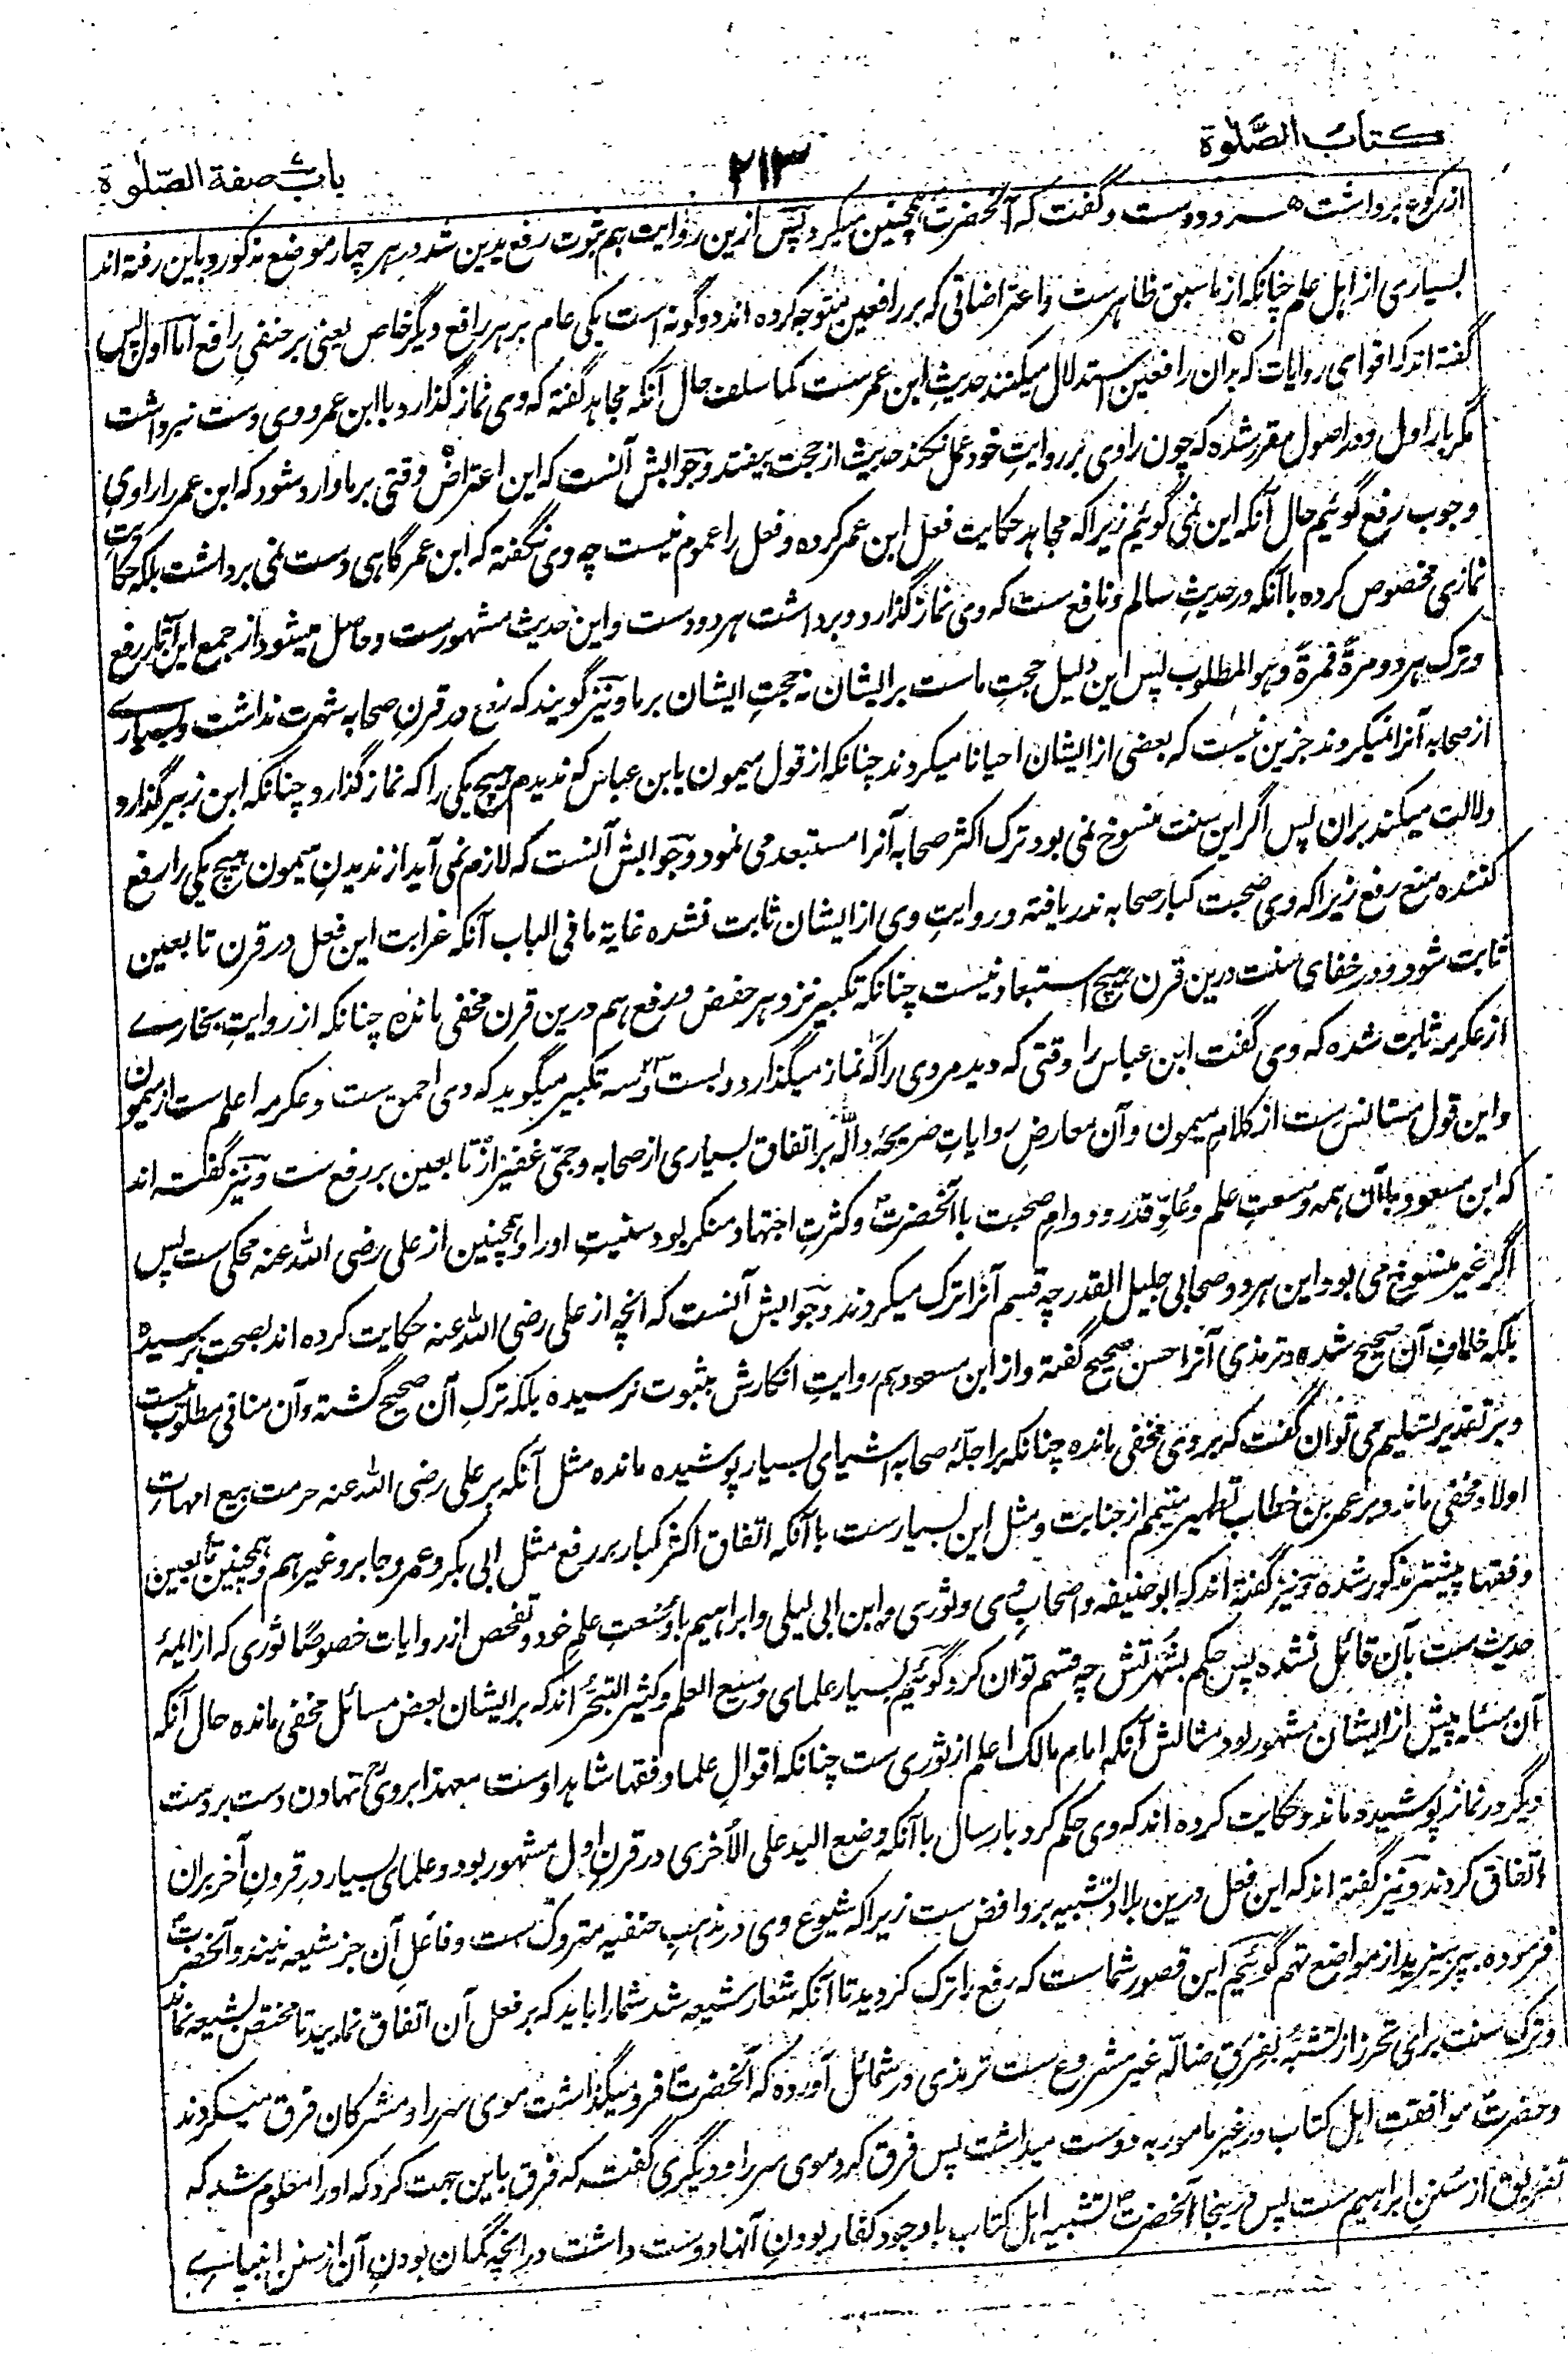 کتاب الصَّلٰوة
۲۱۳
باب صفة الصّلٰوة
از رکوع برداشت هر دو دست و گفت که آنحضرت همچنین میکرد پس ازین روایت هم ثبوت رفع یدین شد در هر چهار موضع مذکور و باین رفته اند
بسیاری از اہل علم چنانکه از ما سبق ظاہرست و اعتراضاتی که بر رافعین متوجه کرده اند دو گونه است یکی عام بر ہر رافع و دیگر خاص یعنی بر حنفیِ رافع اما اول پس
گفته اند که اقوای روایات که بران رافعین استدلال میکنند حدیثِ ابن عمرست کما سلف حال آنکه مجاہد گفته که وی نماز گذارد با ابن عمر و وی دست نبرداشت
مگر بار اول و در اصول مقرر شده که چون راوی بر روایتِ خود عمل نکند حدیث از حجت بیفتد و جوابش آنست که این اعتراض وقتی بر ما وارد شود که ابن عمر را راویِ
وجوب رفع گوئیم حال آنکه این نمی گوئیم زیرا که مجاہد حکایت فعل ابن عمر کرده و فعل را عموم نیست چه وی نگفته که ابن عمر گاہی دست نمی برداشت بلکه حکایتِ
نمازی مخصوص کرده با آنکه در حدیثِ سالم و نافع ست که وی نماز گذارد و برداشت هر دو دست و این حدیث مشہورست و حاصل میشود از جمع این آثار رفع
و ترک ہر دو مرةً فمرةً و ہو المطلوب پس این دلیل حجتِ ماست بر ایشان نه حجتِ ایشان بر ما و نیز گویند که رفع در قرنِ صحابه شہرت نداشت و بسیارے
از صحابه آنرا نمیکردند جز این نیست که بعضی از ایشان احیانا میکردند چنانکه از قول میمون یا بن عباس که ندیدم ہیچ یکی را که نماز گذارد چنانکه ابن زبیر گذارد
دلالت میکند بران پس اگر این سنت منسوخ نمی بود ترک اکثر صحابه آنرا مستبعد می نمود و جوابش آنست که لازم نمی آید از ندیدنِ میمون ہیچ یکی را رفع
کننده منع رفع زیرا که وی صحبت کبار صحابه ندریافته و روایتِ وی از ایشان ثابت نشده غایة ما فی الباب آنکه غرابت این فعل در قرن تابعین
ثابت شود و در خفای سنت درین قرن ہیچ استبعاد نیست چنانکه تکبیر نزد ہر خفض و رفع ہم درین قرن مخفی مانده چنانکه از روایتِ بخارے
از عکرمه ثابت شده که وی گفت ابن عباس را وقتی که دید مردی را که نماز میگذارد و بست و سه تکبیر میگوید که وی احمق ست و عکرمه اعلم ست از میمون
و این قول مستانس ست از کلامِ میمون و آن معارضِ روایاتِ صریحهٔ دالّه بر اتفاق بسیاری از صحابه و جمّی غفیر از تابعین بر رفع ست و نیز گفته اند
که ابن مسعود با آن ہمه وسعتِ علم و عُلوِّ قدر و دوامِ صحبت با آنحضرت و کثرتِ اجتہاد منکر بود سنیتِ او را و ہمچنین از علی رضی اللہ عنه محکی ست پس
اگر غیر منسوخ می بود این ہر دو صحابی جلیل القدر چه قسم آنرا ترک میکردند و جوابش آنست که انچه از علی رضی اللہ عنه حکایت کرده اند بصحت نرسیده
بلکه خلافِ آن صحیح شده و ترمذی آنرا حسن صحیح گفته و از ابن مسعود ہم روایتِ انکارش بثبوت نرسیده بلکه ترکِ آن صحیح گشته و آن منافی مطلوب نیست
و بر تقدیر تسلیم می توان گفت که بر وی مخفی مانده چنانکه بر اجلّهٔ صحابه اشیای بسیار پوشیده مانده مثل آنکه بر علی رضی اللہ عنه حرمت بیع امہات
اولاد مخفی ماند و بر عمر بن خطاب تطہیر متیمم از جنابت و مثل این بسیارست با آنکه اتفاق اکثر کبار بر رفع مثل ابی بکر و عمر و جابر و غیرہم و ہمچنین تابعین
و فقہا پیشتر مذکور شده و نیز گفته اند که ابوحنیفه و اصحابِ وی و ثوری و ابن ابی لیلی و ابراہیم با وسعتِ علمِ خود و تفحص از روایات خصوصًا ثوری که از ایمهٔ
حدیث ست بآن قائل نشده پس حکم بشہرتش چه قسم توان کرد گوئیم بسیار علمای وسیع العلم و کثیر التبحّر اند که بر ایشان بعض مسائل مخفی مانده حال آنکه
آن مسئله پیش از ایشان مشہور بود مثالش آنکه امام مالک اعلم از ثوری ست چنانکه اقوالِ علما و فقہا شاہد اوست معہذا بر وی نہادن دست بر دست
دیگر در نماز پوشیده ماند و حکایت کرده اند که وی حکم کرد بارسال با آنکه وضع الید علی الأخری در قرنِ اول مشہور بود و علمای بسیار در قرونِ آخر بران
اتفاق کردند و نیز گفته اند که این فعل درین بلاد تشبیه بروافض ست زیرا که شیوع وی در مذہبِ حنفیه متروک ست و فاعلِ آن جز شیعه نیند و آنحضرت
فرموده بپرہیزید از مواضع تہم گوئیم این قصور شماست که رفع را ترک کردید تا آنکه شعار شیعه شد شما را باید که بر فعل آن اتفاق نمایید تا مختص بشیعه نماند
و ترک سنت برای تحرز از تشبّه بفرقِ ضالّه غیر مشروع ست ترمذی در شمائل آورده که آنحضرت فرو میگذاشت موی سر را و مشرکان فرق میکردند
و حضرت موافقتِ اہل کتاب در غیر مامور به دوست میداشت پس فرق کرد موی سر را و دیگری گفت که فرق باین جہت کرد که او را معلوم شد که
تفریق از سُننِ ابراہیم ست پس درینجا آنحضرت تشبیه اہل کتاب با وجود کفار بودنِ آنہا دوست داشت در انچه گمان بودنِ آن از سننِ انبیاے